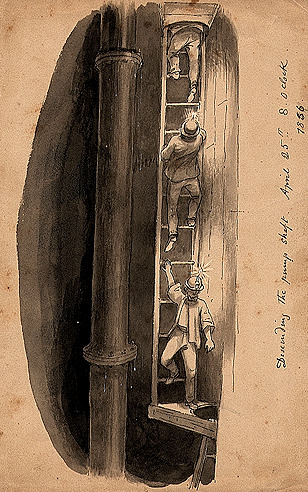 Descending the pump shaft April 25th 8 o'clock